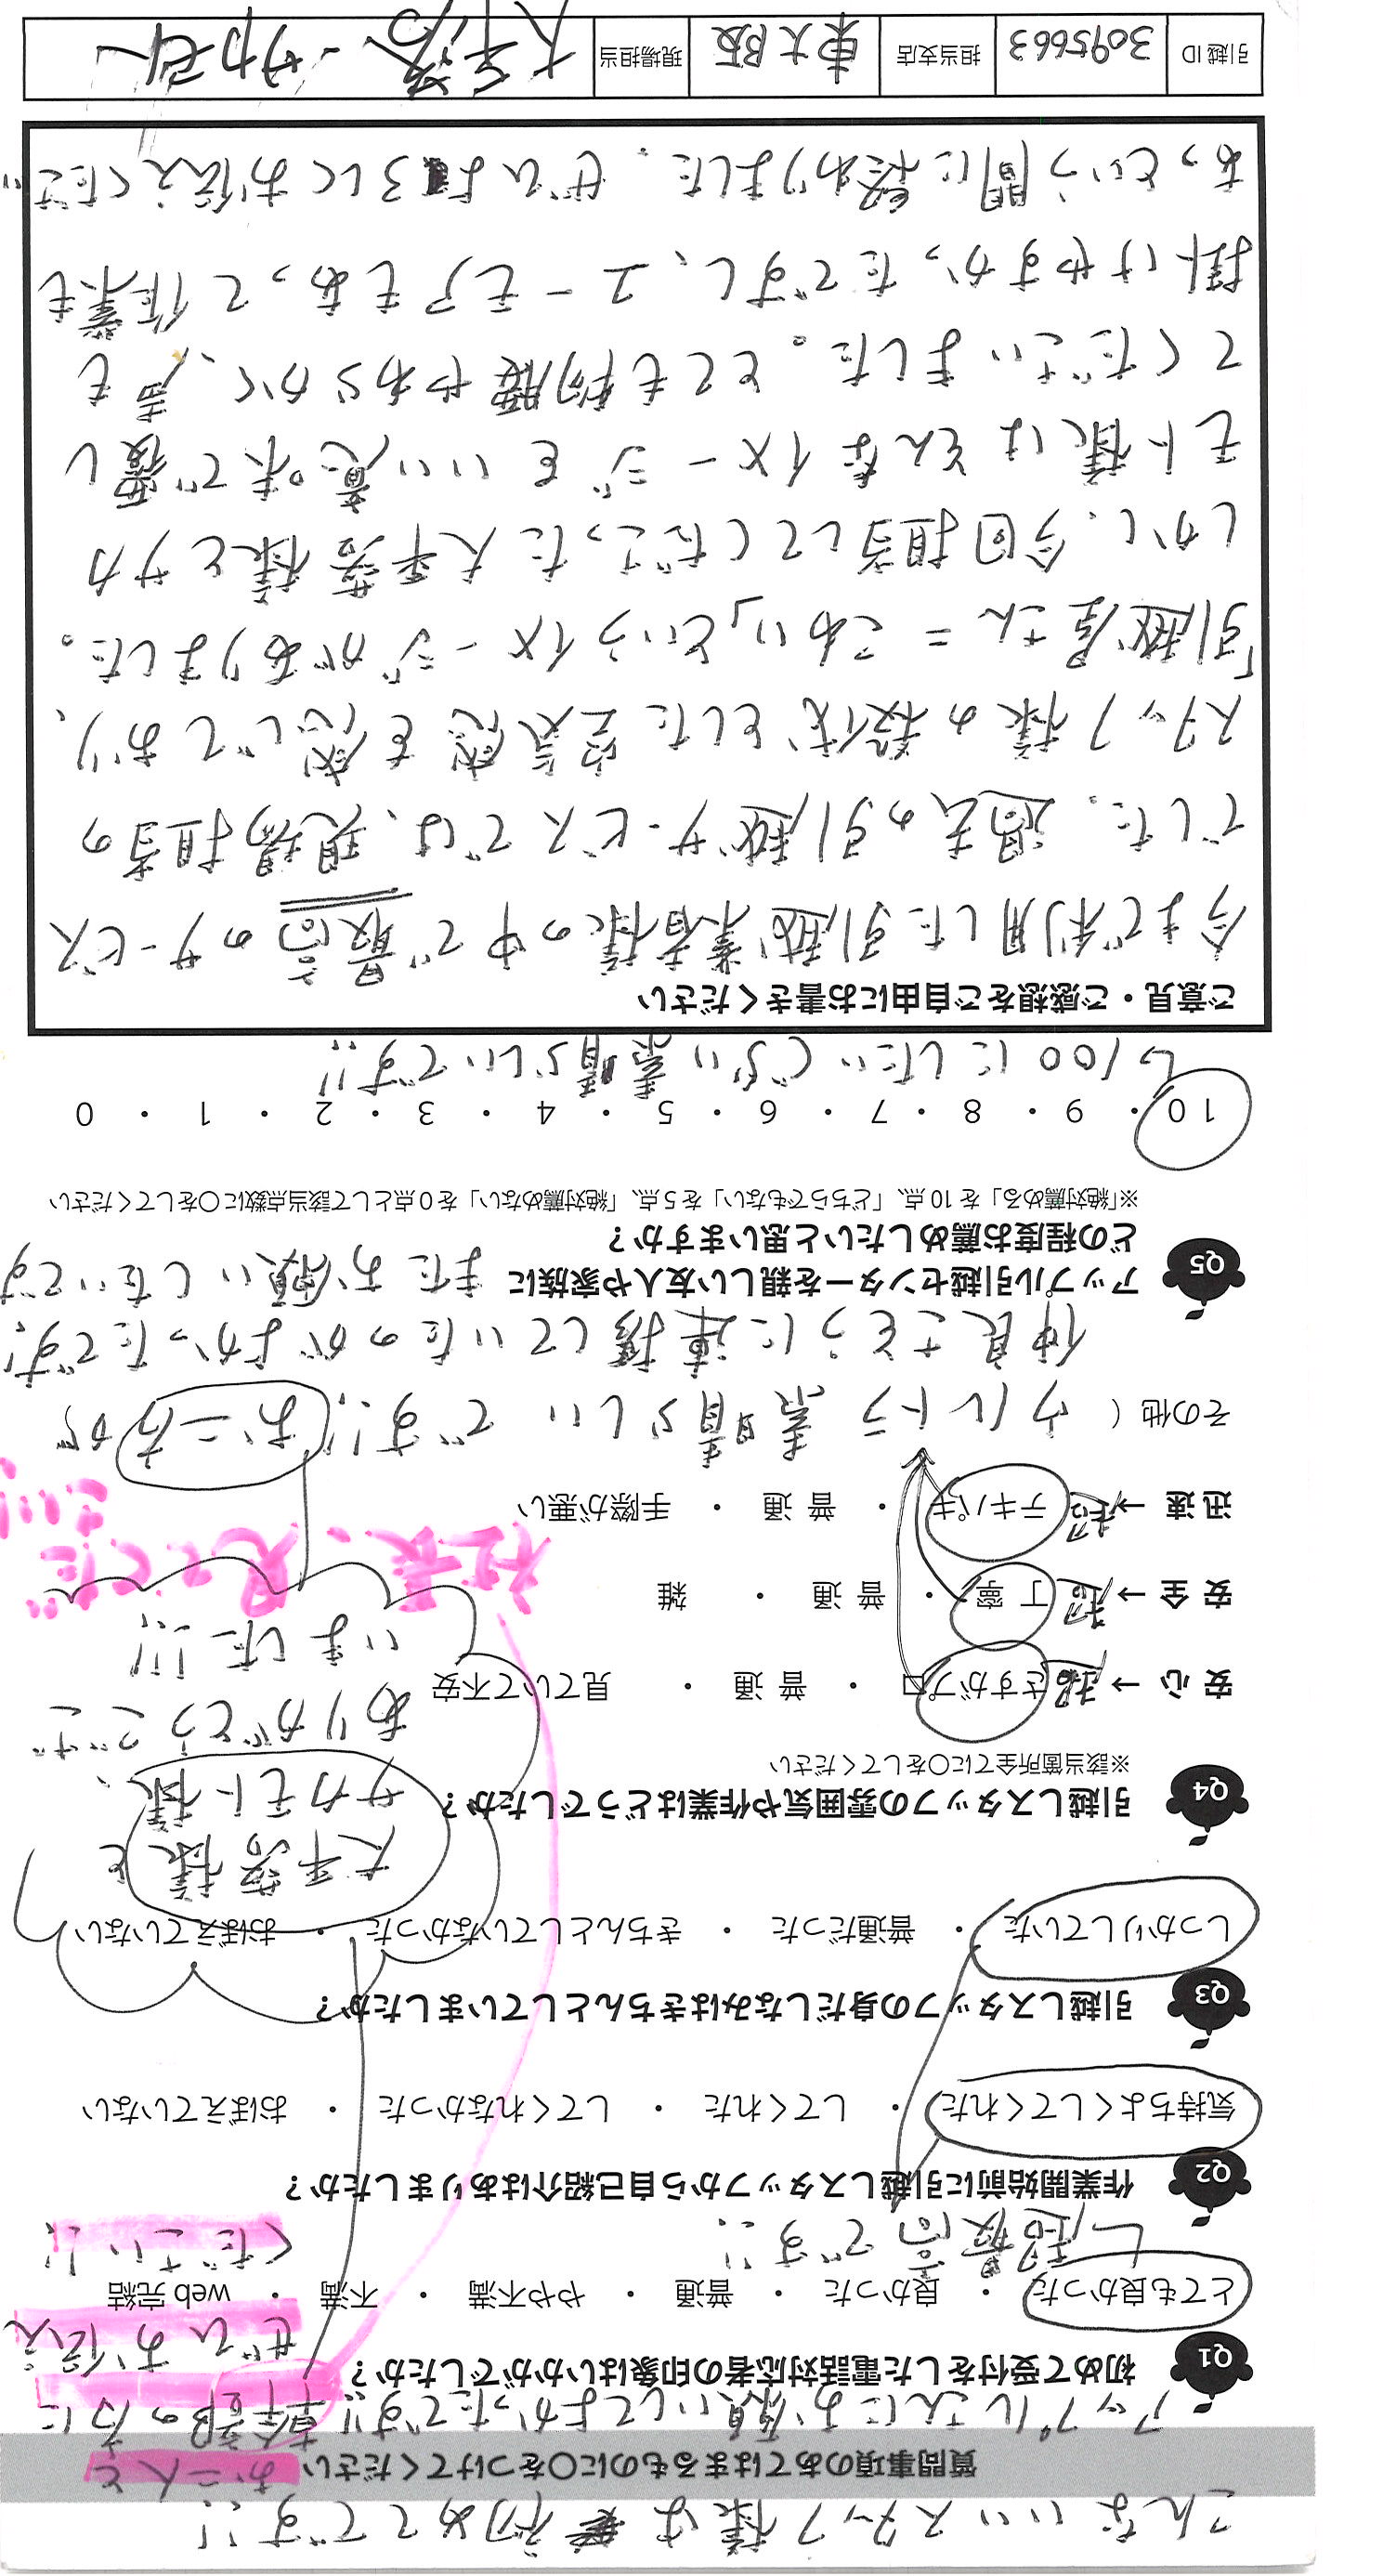 こんないいスタッフ様は初めてです!!
質問事項のあてはまるものに○をつけてください
お二人と
アップルさんにお願いしてよかったです!!
幹部の方に
ぜひお伝え
ください!!
Q1 初めて受付をした電話対応者の印象はいかがでしたか?
とても良かった ・ 良かった ・ 普通 ・ やや不満 ・ 不満 ・ web完結
→超最高です!!
Q2 作業開始前に引越しスタッフから自己紹介はありましたか?
気持ちよくしてくれた ・ してくれた ・ してくれなかった ・ おぼえていない
Q3 引越しスタッフの身だしなみはきちんとしていましたか?
しっかりしていた ・ 普通だった ・ きちんとしていなかった ・ おぼえていない
大平落様と
サカモト様、
ありがとうござ
いました!!!
Q4 引越しスタッフの雰囲気や作業はどうでしたか?
※該当箇所全てに○をしてください
安心 → 超 さすがプロ ・ 普通 ・ 見ていて不安
安全 → 超 丁寧 ・ 普通 ・ 雑
迅速 → 超 テキパキ ・ 普通 ・ 手際が悪い
社長、見ててだ
その他( ウルトラ素晴らしいです!! お二方が
仲良さそうに連携していたのがよかったです!
またお願いしたいです
Q5 アップル引越センターを親しい友人や家族に
どの程度お薦めしたいと思いますか?
※「絶対薦める」を10点、「どちらでもない」を5点、「絶対薦めない」を0点として該当点数に○をしてください
10 ・ 9 ・ 8 ・ 7 ・ 6 ・ 5 ・ 4 ・ 3 ・ 2 ・ 1 ・ 0
→100にしたいぐらい素晴らしいです!!
ご意見・ご感想をご自由にお書きください
今まで利用した引越業者様の中で最高のサービス
でした。過去の引越サービスでは、現場担当の
スタッフ様の殺伐とした空気感を感じており、
「引越屋さん=こわい」というイメージがありました。
しかし、今回担当してくださった大平落様とサカ
モト様はそんなイメージをいい意味で覆し
てくださいました。とても物腰やわらかく、声も
掛けやすかったですし、ユーモアもあって作業も
あっという間に終わりました。ぜひよろしくお伝えくださ
引越ID 3095663 担当支店 東大阪 現場担当 大平落・サカモト